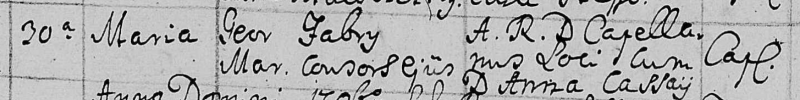 30ª Maria Geor Fabry A. R. D Capella-
Mar. consors ejus nus Loci cum Cap.
Anno Domini D Anna Cassaij